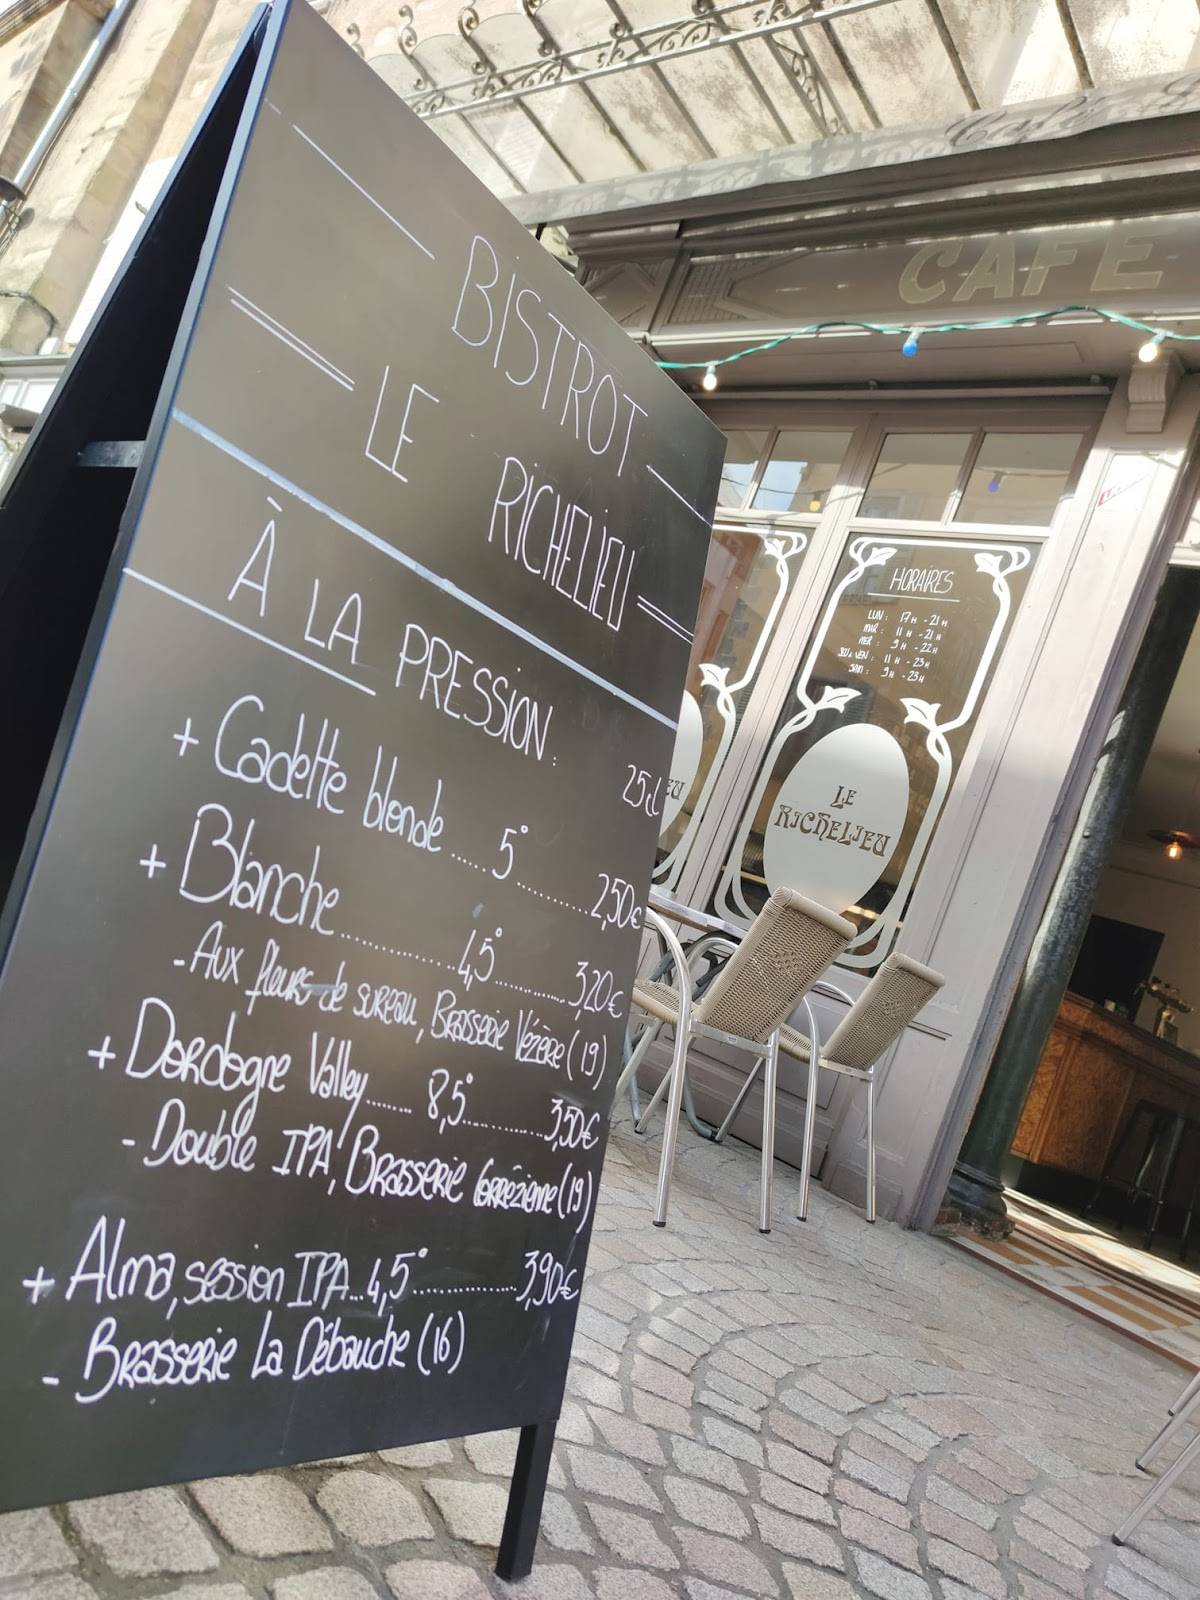 BISTROT
LE RICHELIEU
À LA PRESSION :
25cl
+ Cadette blonde ...... 5° ............ 2,50€
+ Blanche .................. 4,5° ............ 3,20€
- Aux fleurs de sureau, Brasserie Vézère (19)
+ Dordogne Valley ........ 8,5° ............ 3,50€
- Double IPA, Brasserie Corrézienne (19)
+ Alma, session IPA... 4,5° ................ 3,90€
- Brasserie La Débauche (16)
CAFE
HORAIRES
LUN : 17H - 21H
MAR : 11H - 21H
MER : 9H - 22H
JEU & VEN : 11H - 23H
SAM : 9H - 23H
LE
RICHELIEU
EU